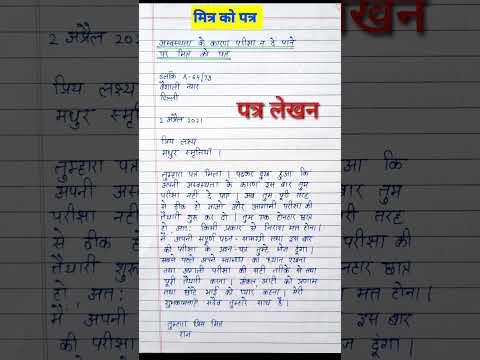 मित्र को पत्र
अस्वस्थता के कारण परीक्षा न दे पाने
पर मित्र को पत्र
ब्लॉक A-64/73
वैशाली नगर
दिल्ली
पत्र लेखन
2 अप्रैल 2021
प्रिय लक्ष्य
मधुर स्मृतियाँ ।
तुम्हारा पत्र मिला । पढ़कर दुख हुआ कि
अपनी अस्वस्थता के कारण इस बार तुम
परीक्षा नहीं दे पाए । अब तुम पूरी तरह
से ठीक हो जाओ और आगामी परीक्षा की
तैयारी शुरू कर दो । तुम एक होनहार छात्र
हो अतः किसी प्रकार से निराश मत होना ।
मैं अपनी सम्पूर्ण पठन-सामग्री तथा इस बार
की परीक्षा के प्रश्न-पत्र तुम्हें भेज दूंगा ।
सबसे पहले अपने स्वास्थ्य का ध्यान रखना
तथा अगली परीक्षा की सही तरीके से तथा
पूरी तैयारी करना । अंकल आंटी को प्रणाम
तथा छोटे भाई को प्यार कहना । मेरी
शुभकामनाएं सदैव तुम्हारे साथ है ।
तुम्हारा प्रिय मित्र
राम
2 अप्रैल 202
प्रिय लक्ष्य
मधुर स्मृ
तुम्हारा पत्र
अपनी अस
परीक्षा नहीं
से ठीक हो
तैयारी शुरू
हो, अतः
मैं, अपनी
हुआ कि
बार तुम
री तरह
परीक्षा की
र छात्र
मत होना ।
इस बार
दूंगा ।